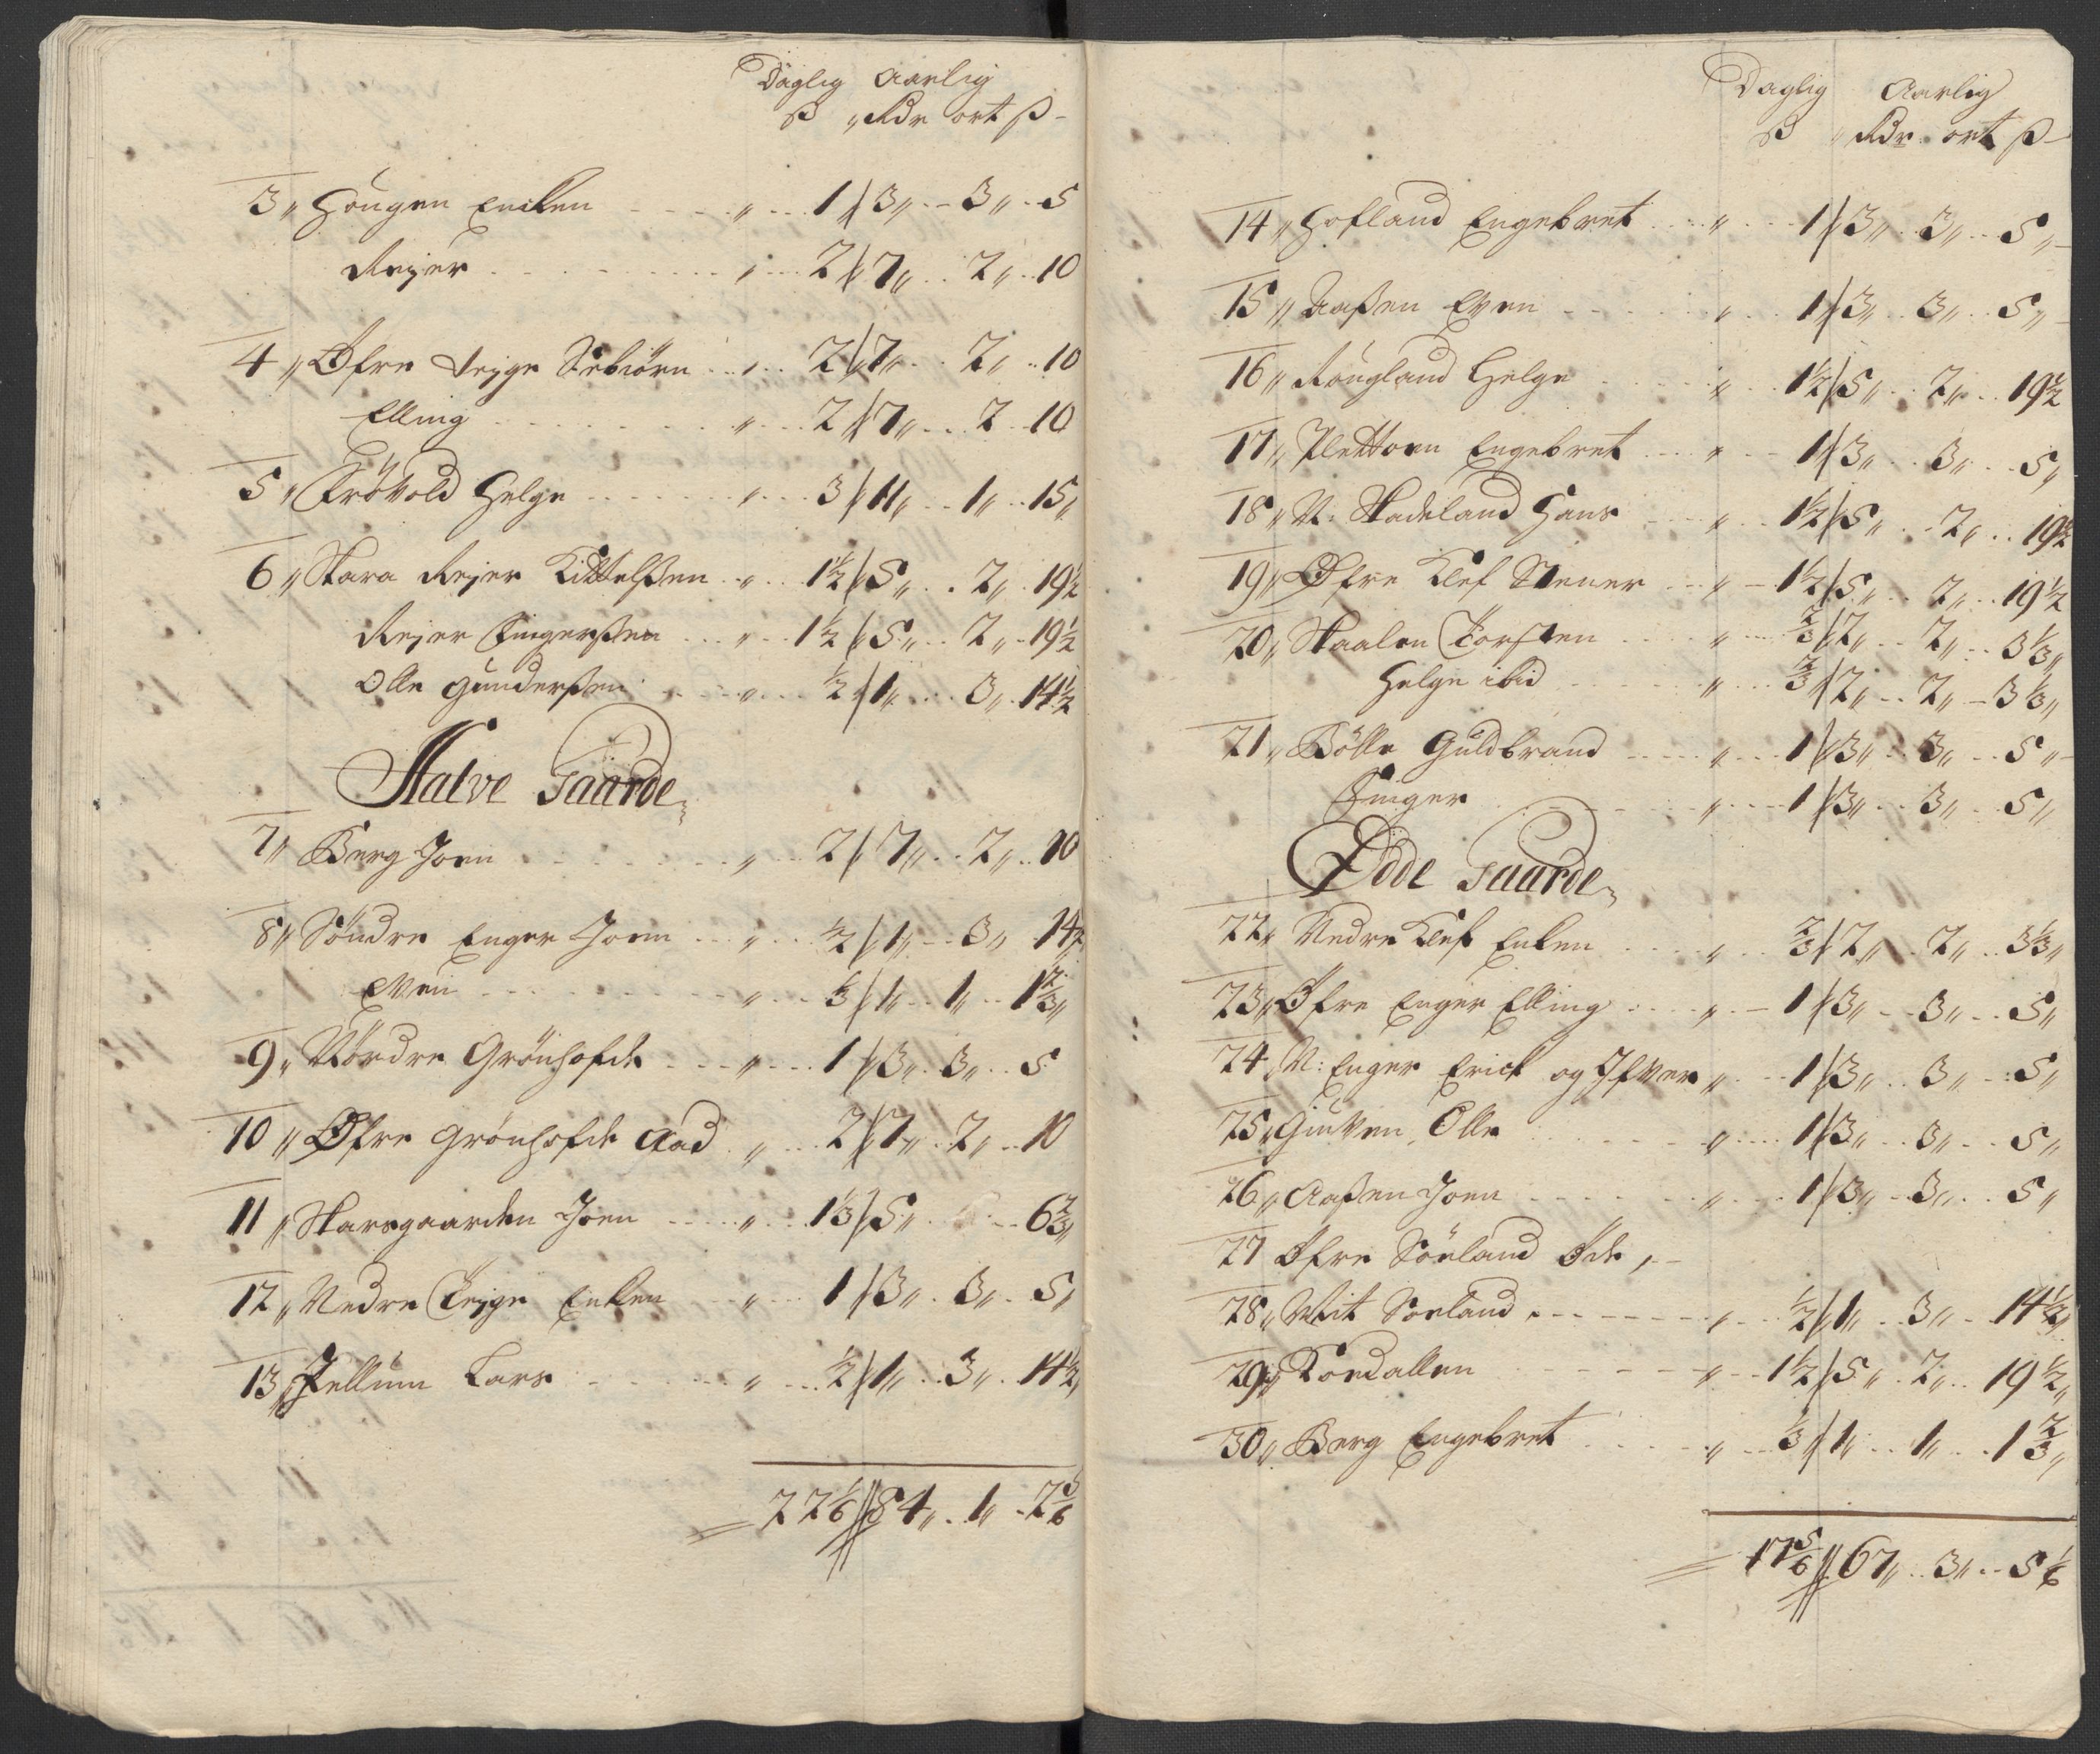 Daglig Aarlig
ß „ Rdr ort ß
3 „ Hougen Encken „ 1 „ 3 „ 3 „ 5
Rejer „ 2 „ 7 „ 2 „ 10
4 „ Øfre Trejge Sebiørn „ 2 „ 7 „ 2 „ 10
Elling „ 2 „ 7 „ 2 10
5 „ Frøvold Helge „ 3 „ 11 „ 1 „ 15 „
6 „ Skara Rejer Kittelßen „ 1½ „ 5 „ 2 „ 19½
Rejer Fingerßen „ 1½ „ 5 „ 2 „ 19½
Olle Gunderßen „ ½ „ 1 „ 3 „ 14½
Halve Gaarde
7 „ Berg Joen „ 2 „ 7 „ 2 „ 10
8 „ Søndre Enger Joen „ ½ „ 1 „ 3 „ 14½
Even „ ⅓ „ 1 „ 1 „ 1⅔ „
9 „ Nordre Grønhofde „ 1 „ 3 „ 3 „ 5
10 „ Øfre Grønhofde Aad „ 2 „ 7 „ 2 „ 10
11 „ Skarsgaarden Joen „ 1⅓ „ 5 „ 6⅔ „
12 „ Nedre Trejge Enken „ 1 „ 3 „ 3 „ 5 „
13 „ Jellum Lars „ ½ „ 1 „ 3 „ 14½ „
22⅙ „ 84 „ 1 „ 2⅚
Daglig Aarlig
ß „ Rdr ort ß
14 „ Hofland Engebret „ 1 „ 3 „ 3 „ 5 „
15 „ Aaßen Even „ 1 „ 3 „ 3 „ 5 „
16 „ Rougland Helge „ 1½ „ 5 „ 2 „ 19½
17 „ Plettoen Engebret „ 1 „ 3 „ 3 „ 5 „
18 „ N: Hadeland Hans „ 1½ „ 5 „ 2 „ 19½
19 „ Øfre Klef Stener „ 1½ „ 5 „ 2 „ 19½
20 „ Skaalen Torsten „ ⅔ „ 2 „ 2 „ 3⅓ „
Helge ibid „ ⅔ „ 2 „ 2 „ 3⅓ „
21 „ Bølle Guldbrand „ 1 „ 3 „ 3 „ 5 „
Finger „ 1 „ 3 „ 3 „ 5 „
Øde Gaarde
22 „ Nedre Klef Enken „ ⅔ „ 2 „ 2 „ 3⅓ „
23 „ Øfre Enger Elling „ 1 „ 3 „ 3 „ 5 „
24 N: Enger Erick og Ifver „ 1 „ 3 „ 3 „ 5 „
25 „ Giuven Olle „ 1 „ 3 „ 3 „ 5 „
26 „ Aaßen Joen „ 1 „ 3 „ 3 „ 5 „
27 Øfre Sørland Øde
28 „ Mit Sorland „ ½ „ 1 „ 3 „ 14½ „
29 „ Tordallen „ 1½ „ 5 „ 2 „ 19½ „
30 „ Berg Engebret „ ⅓ „ 1 „ 1 „ 1⅔ „
17⅚ „ 67 „ 3 „ 5⅙